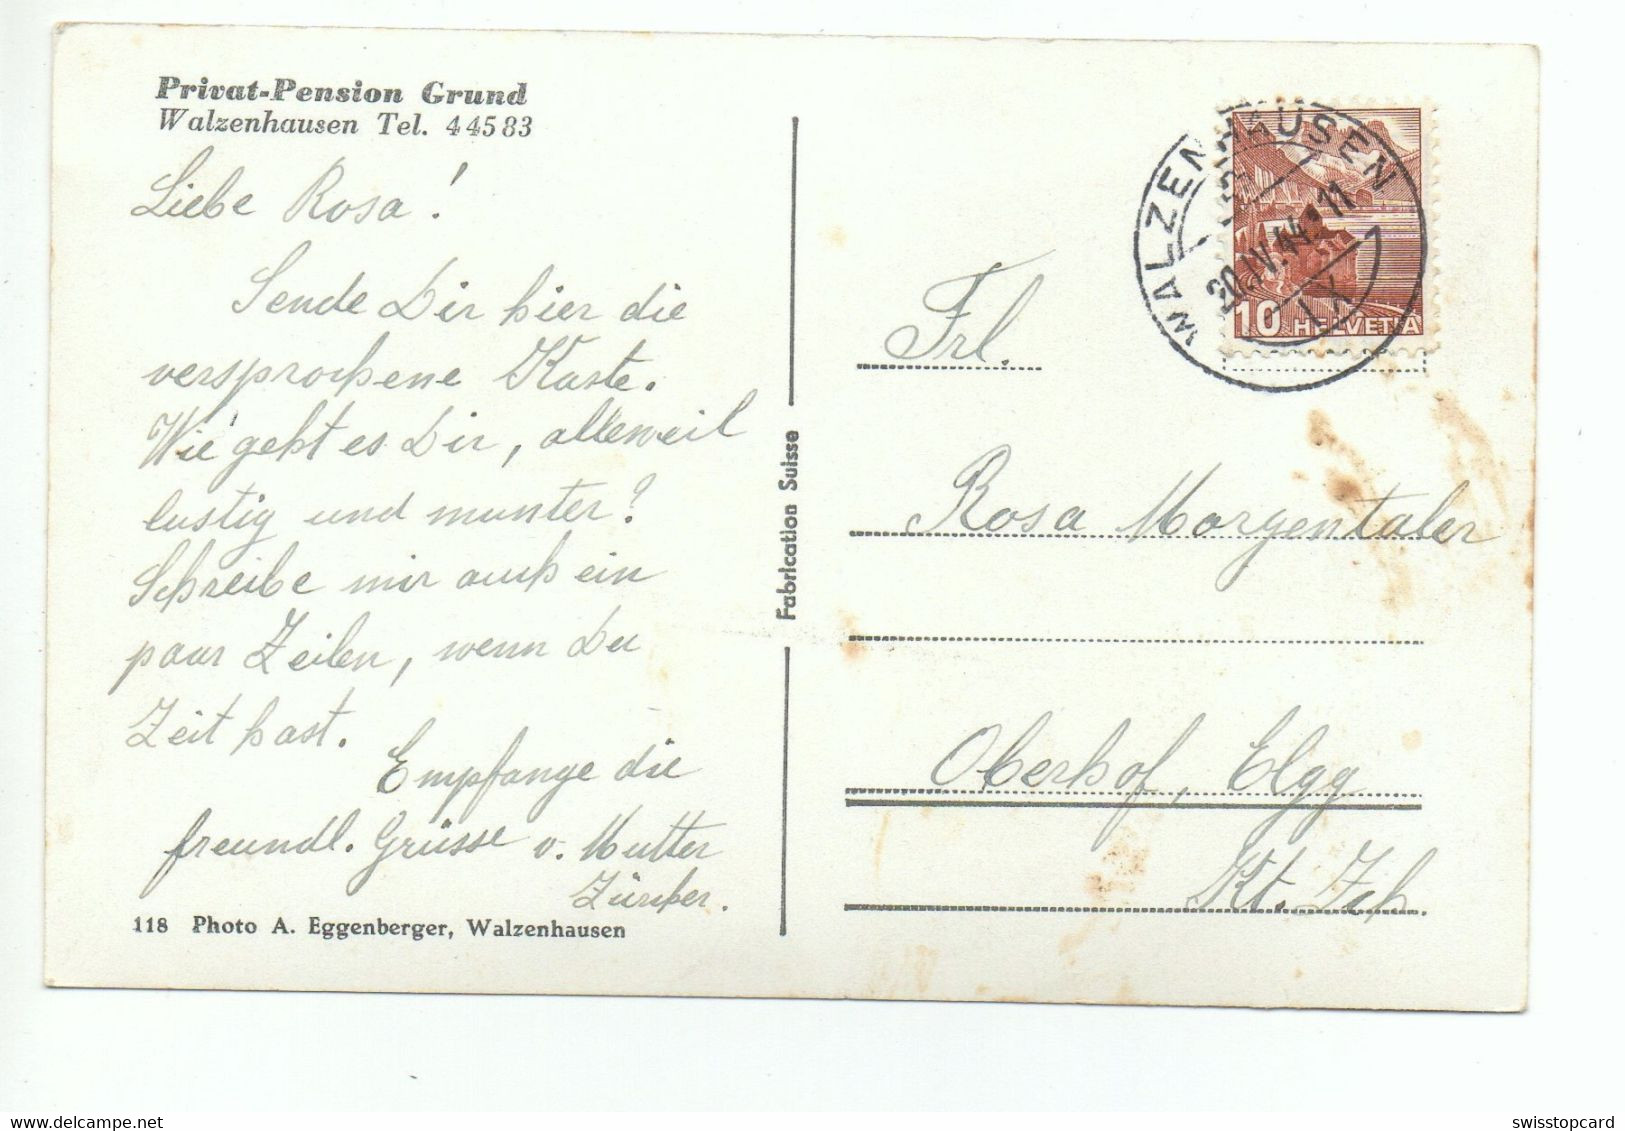 Privat-Pension Grund
Walzenhausen Tel. 44583
Liebe Rosa!
Sende Dir hier die
versprochene Karte.
Wie geht es Dir, alleweil
lustig und munter?
Schreibe mir auch ein
paar Zeilen, wenn Du
Zeit hast.
Empfange die
freundl. Grüsse v. Mutter
Zürcher.
118 Photo A. Eggenberger, Walzenhausen
Fabrication Suisse
WALZENHAUSEN
20.IV.44. 11
IX
10 HELVETIA
Frl.
Rosa Morgentaler
Oberhof, Elgg
Kt. Zch.
delcampe.net
swisstopcard